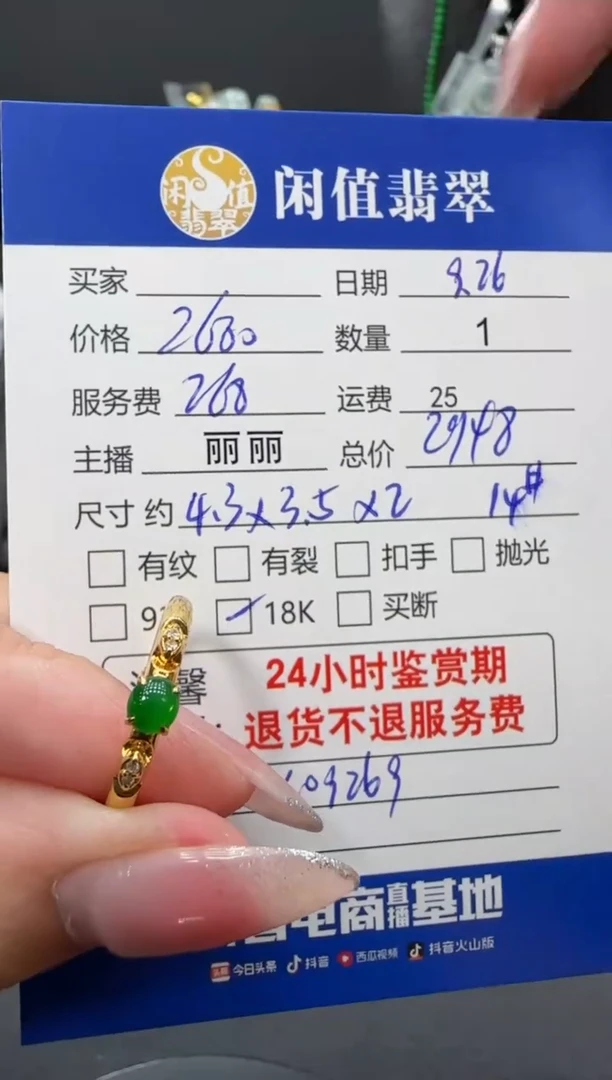 闲值翡翠
闲值
翡翠
买家 日期 9.26
价格 2680 数量 1
服务费 268 运费 25
主播 丽丽 总价 2948
尺寸 约 4.3x3.5x2 14#
有纹 有裂 扣手 抛光
9 18K 买断
馨 24小时鉴赏期
: 退货不退服务费
09269
电商直播基地
头条 今日头条 抖音 西瓜视频 抖音火山版